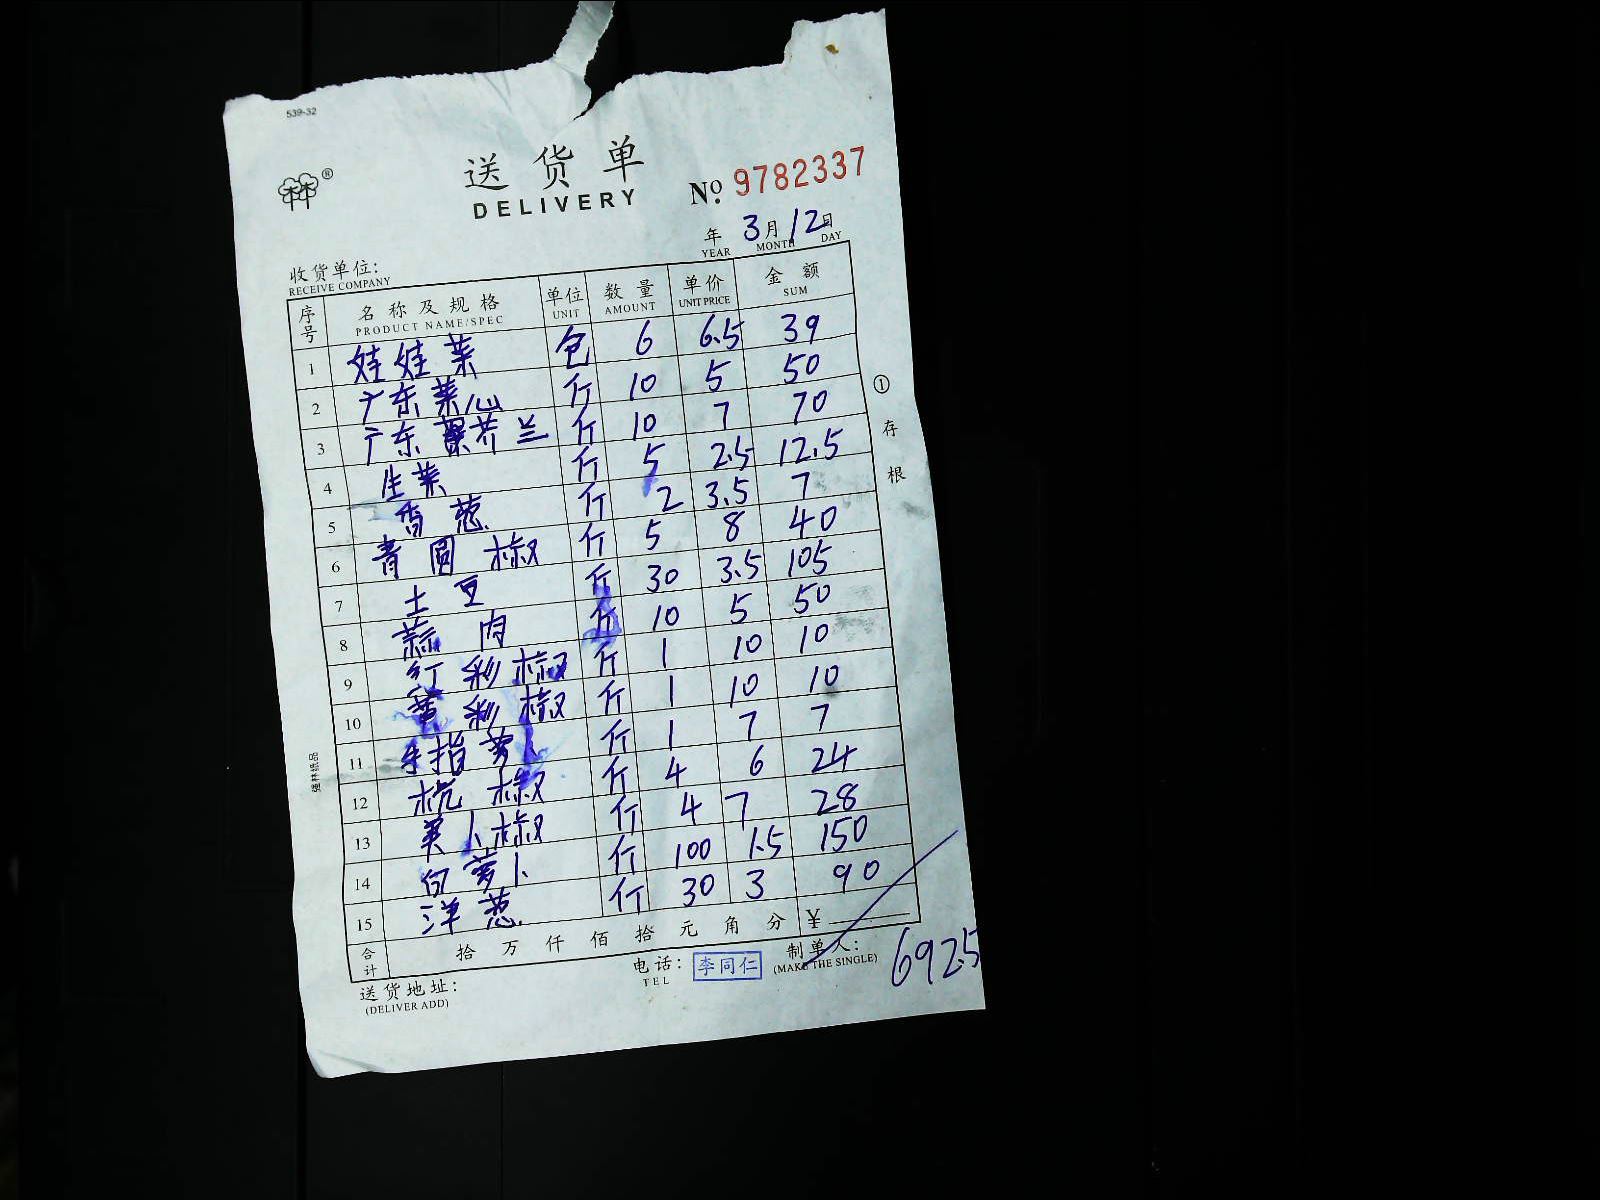 539-32
送货单
DELIVERY
№ 9782337
年 3月12日
YEAR MONTH DAY
收货单位:
RECEIVE COMPANY
序号 名称及规格 单位 数量 单价 金额
PRODUCT NAME/SPEC UNIT AMOUNT UNIT PRICE SUM
1 娃娃菜 包 6 6.5 39
2 广东菜心 斤 10 5 50
3 广东芥兰 斤 10 7 70
4 生菜 斤 5 2.5 12.5
5 香葱 斤 2 3.5 7
6 青圆椒 斤 5 8 40
7 土豆 斤 30 3.5 105
8 蒜肉 斤 10 5 50
9 红彩椒 斤 1 10 10
10 黄彩椒 斤 1 10 10
11 手指萝卜 斤 1 7 7
12 杭椒 斤 4 6 24
13 美人椒 斤 4 7 28
14 白萝卜 斤 100 1.5 150
15 洋葱 斤 30 3 90
合计 拾 万 仟 佰 拾 元 角 分 ¥
692.5
电话: 李同仁 制单人:
TEL (MAKE THE SINGLE)
送货地址:
(DELIVER ADD)
① 存根